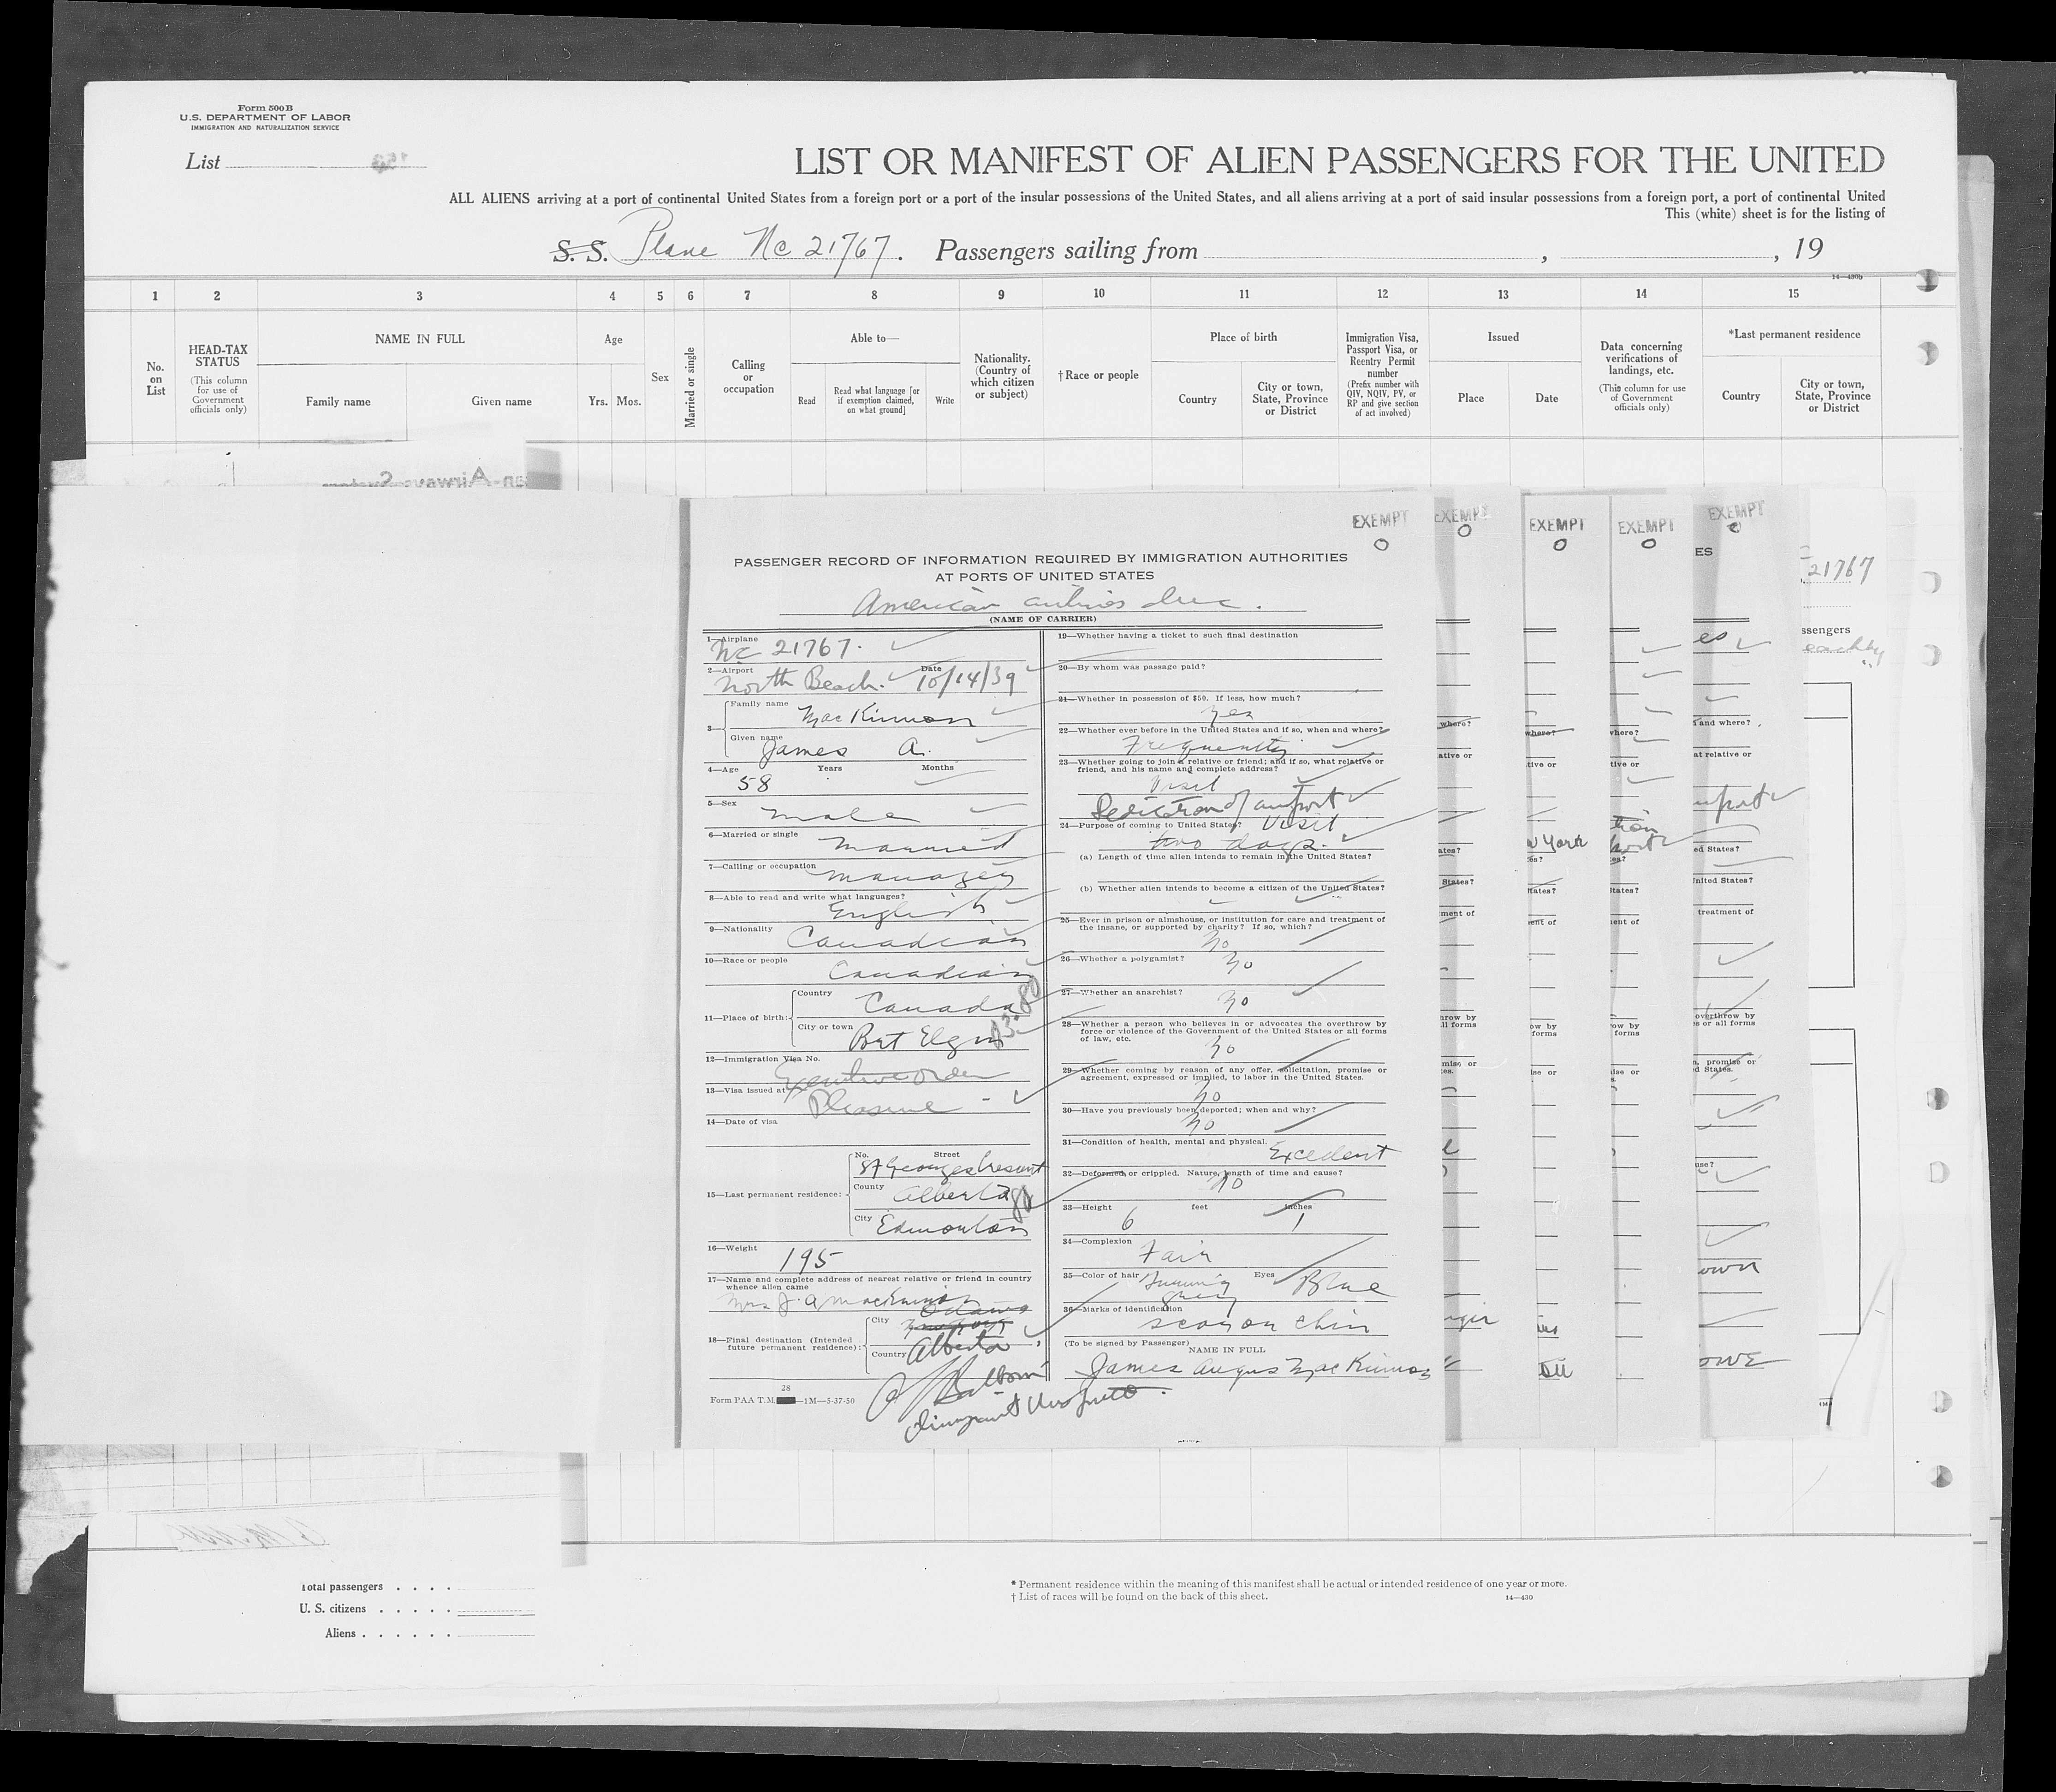 Form 500 B
U.S. DEPARTMENT OF LABOR
IMMIGRATION AND NATURALIZATION SERVICE
List
LIST OR MANIFEST OF ALIEN PASSENGERS FOR THE UNITED
ALL ALIENS arriving at a port of continental United States from a foreign port or a port of the insular possessions of the United States, and all aliens arriving at a port of said insular possessions from a foreign port, a port of continental United
This (white) sheet is for the listing of
S. S. Plane Nc 21767. Passengers sailing from , , 19
14—430b
1 2 3 4 5 6 7 8 9 10 11 12 13 14 15
No. on List
HEAD-TAX STATUS
(This column for use of Government officials only)
NAME IN FULL
Family name
Given name
Age
Yrs. Mos.
Sex
Married or single
Calling or occupation
Able to—
Read
Read what language [or if exemption claimed, on what ground]
Write
Nationality. (Country of which citizen or subject)
†Race or people
Place of birth
Country
City or town, State, Province or District
Immigration Visa, Passport Visa, or Reentry Permit number
(Prefix number with QIV, NQIV, PV, or RP and give section of act involved)
Issued
Place
Date
Data concerning verifications of landings, etc.
(This column for use of Government officials only)
*Last permanent residence
Country
City or town, State, Province or District
EXEMPT EXEMPT EXEMPT EXEMPT EXEMPT
O O O O
PASSENGER RECORD OF INFORMATION REQUIRED BY IMMIGRATION AUTHORITIES
AT PORTS OF UNITED STATES
American Airlines Inc.
(NAME OF CARRIER)
1—Airplane
NC 21767.
2—Airport Date
North Beach. 10/14/39
3—
Family name
MacKinnon
Given name
James A.
4—Age Years Months
58
5—Sex
Male
6—Married or single
Married
7—Calling or occupation
Manager
8—Able to read and write what languages?
English
9—Nationality
Canadian
10—Race or people
Canadian
11—Place of birth:
Country
Canada
City or town
Port Elgin
12—Immigration Visa No.
Executive Order
13—Visa issued at
Pleasure -
14—Date of visa
15—Last permanent residence:
No. Street
St Georges Cresent
County
Alberta
City
Edmonton
16—Weight
195
17—Name and complete address of nearest relative or friend in country
whence alien came
Mrs J. A MacKinnon
Ottawa
18—Final destination (Intended
future permanent residence):
City
Country
Alberta
28
Form PAA T.M. —1M—5-37-50
19—Whether having a ticket to such final destination
20—By whom was passage paid?
21—Whether in possession of $50. If less, how much?
Yes
22—Whether ever before in the United States and if so, when and where?
Frequently
23—Whether going to join a relative or friend; and if so, what relative or
friend, and his name and complete address?
Visit
Dedication of airport
24—Purpose of coming to United States?
Visit
two days.
(a) Length of time alien intends to remain in the United States?
(b) Whether alien intends to become a citizen of the United States?
25—Ever in prison or almshouse, or institution for care and treatment of
the insane, or supported by charity? If so, which?
No
26—Whether a polygamist?
No
27—Whether an anarchist?
No
28—Whether a person who believes in or advocates the overthrow by
force or violence of the Government of the United States or all forms
of law, etc.
No
29—Whether coming by reason of any offer, solicitation, promise or
agreement, expressed or implied, to labor in the United States.
No
30—Have you previously been deported; when and why?
No
31—Condition of health, mental and physical.
Excellent
32—Deformed or crippled. Nature, length of time and cause?
No
33—Height feet inches
6 1
34—Complexion
Fair
35—Color of hair Eyes
Turning Grey Blue
36—Marks of identification
Scar on chin
(To be signed by Passenger)
NAME IN FULL
James Angus MacKinnon
21767
Total passengers . . . .
U. S. citizens . . . . .
Aliens . . . . . .
* Permanent residence within the meaning of this manifest shall be actual or intended residence of one year or more.
† List of races will be found on the back of this sheet.
14—430